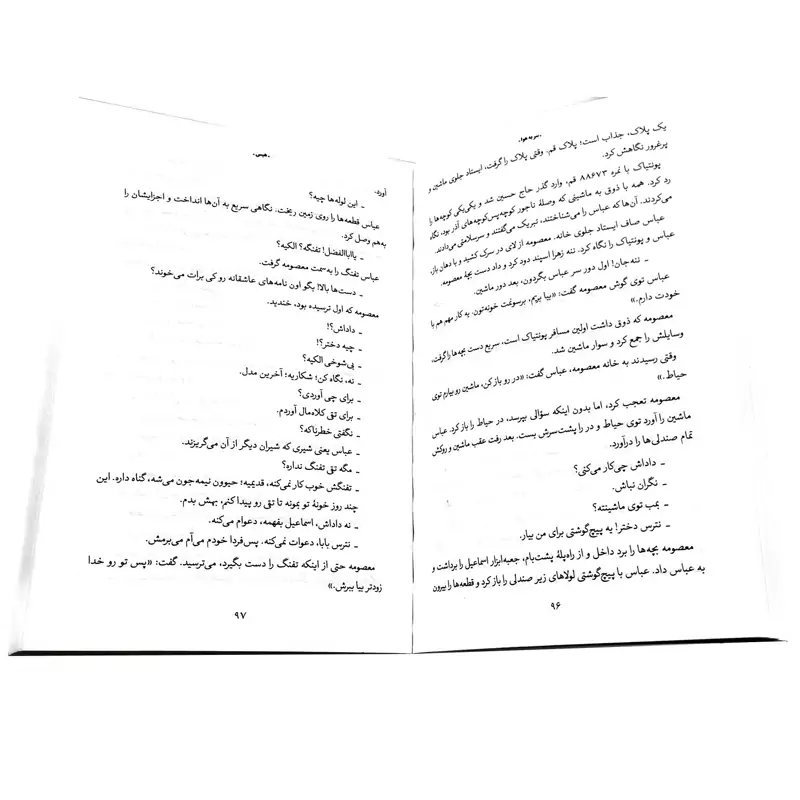 ـ سر به هوا ـ
یک پلاک، جذاب است؛ پلاک قم. وقتی پلاک را گرفت، ایستاد جلوی ماشین و
پرغرور نگاهش کرد.
پونتیاک با نمره ۸۸۶۷۳ قم، وارد گذر حاج حسین شد و یکی‌یکی کوچه‌ها را
رد کرد. همه با ذوق به ماشینی که وصلهٔ ناجور کوچه‌پس‌کوچه‌های آذر بود، نگاه
می‌کردند. آن‌ها که عباس را می‌شناختند، تبریک می‌گفتند و سرسلامتی می‌دادند.
عباس صاف ایستاد جلوی خانه. معصومه از لای در سرک کشید و با دهان باز،
عباس و پونتیاک را نگاه کرد. ننه زهرا اسپند دود کرد و داد دست بچهٔ معصومه.
ـ ننه‌جان! اول دور سر عباس بگردون، بعد دور ماشین.
عباس توی گوش معصومه گفت: «بیا بریم، برسونمت خونه‌تون. یه کار مهم هم با
خودت دارم.»
معصومه که ذوق داشت اولین مسافر پونتیاک است، سریع دست بچه‌ها را گرفت،
وسایلش را جمع کرد و سوار ماشین شد.
وقتی رسیدند به خانه معصومه، عباس گفت: «در رو باز کن، ماشین رو بیارم توی
حیاط.»
معصومه تعجب کرد، اما بدون اینکه سؤالی بپرسد، در حیاط را باز کرد. عباس
ماشین را آورد توی حیاط و در را پشت‌سرش بست. بعد رفت عقب ماشین و روکش
تمام صندلی‌ها را درآورد.
ـ داداش چی‌کار می‌کنی؟
ـ نگران نباش.
ـ بمب توی ماشینته؟
ـ نترس دختر! یه پیچ‌گوشتی برای من بیار.
معصومه بچه‌ها را برد داخل و از راه‌پلهٔ پشت‌بام، جعبه‌ابزار اسماعیل را برداشت و
به عباس داد. عباس با پیچ‌گوشتی لولاهای زیر صندلی را باز کرد و قطعه‌ها را بیرون
۹۶
آورد.
ـ این لوله‌ها چیه؟
عباس قطعه‌ها را روی زمین ریخت. نگاهی سریع به آن‌ها انداخت و اجزایشان را
به‌هم وصل کرد.
ـ یااباالفضل! تفنگه؟ الکیه؟
عباس تفنگ را به‌سمت معصومه گرفت.
ـ دست‌ها بالا! بگو اون نامه‌های عاشقانه رو کی برات می‌خوند؟
معصومه که اول ترسیده بود، خندید.
ـ داداش؟!
ـ چیه دختر؟!
ـ بی‌شوخی الکیه؟
ـ نه، نگاه کن؛ شکاریه؛ آخرین مدل.
ـ برای چی آوردی؟
ـ برای تقی کلاه‌مال آوردم.
ـ نگفتی خطرناکه؟
ـ عباس یعنی شیری که شیران دیگر از آن می‌گریزند.
ـ مگه تقی تفنگ نداره؟
ـ تفنگش خوب کار نمی‌کنه، قدیمیه؛ حیوون نیمه‌جون می‌شه، گناه داره. این
چند روز خونهٔ تو بمونه تا تقی رو پیدا کنم، بهش بدم.
ـ نه داداش، اسماعیل بفهمه، دعوام می‌کنه.
ـ نترس بابا، دعوات نمی‌کنه. پس‌فردا خودم می‌آم می‌برمش.
معصومه حتی از اینکه تفنگ را دست بگیرد، می‌ترسید. گفت: «پس تو رو خدا
زودتر بیا ببرش.»
۹۷